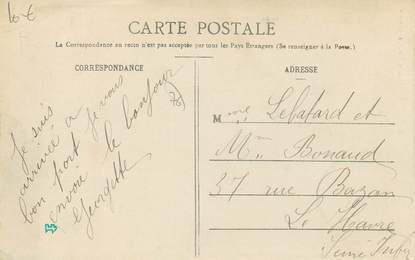 10€
CARTE POSTALE
La Correspondance au recto n'est pas acceptée par tous les Pays Etrangers (Se renseigner à la Poste.)
CORRESPONDANCE
ADRESSE
Je suis
arrivée a
bon port je vous
envoie le bonjour
Georgette
Mme Lebatard et
Mm Bonaud
37 rue Bazan
Le Havre
Seine Infre